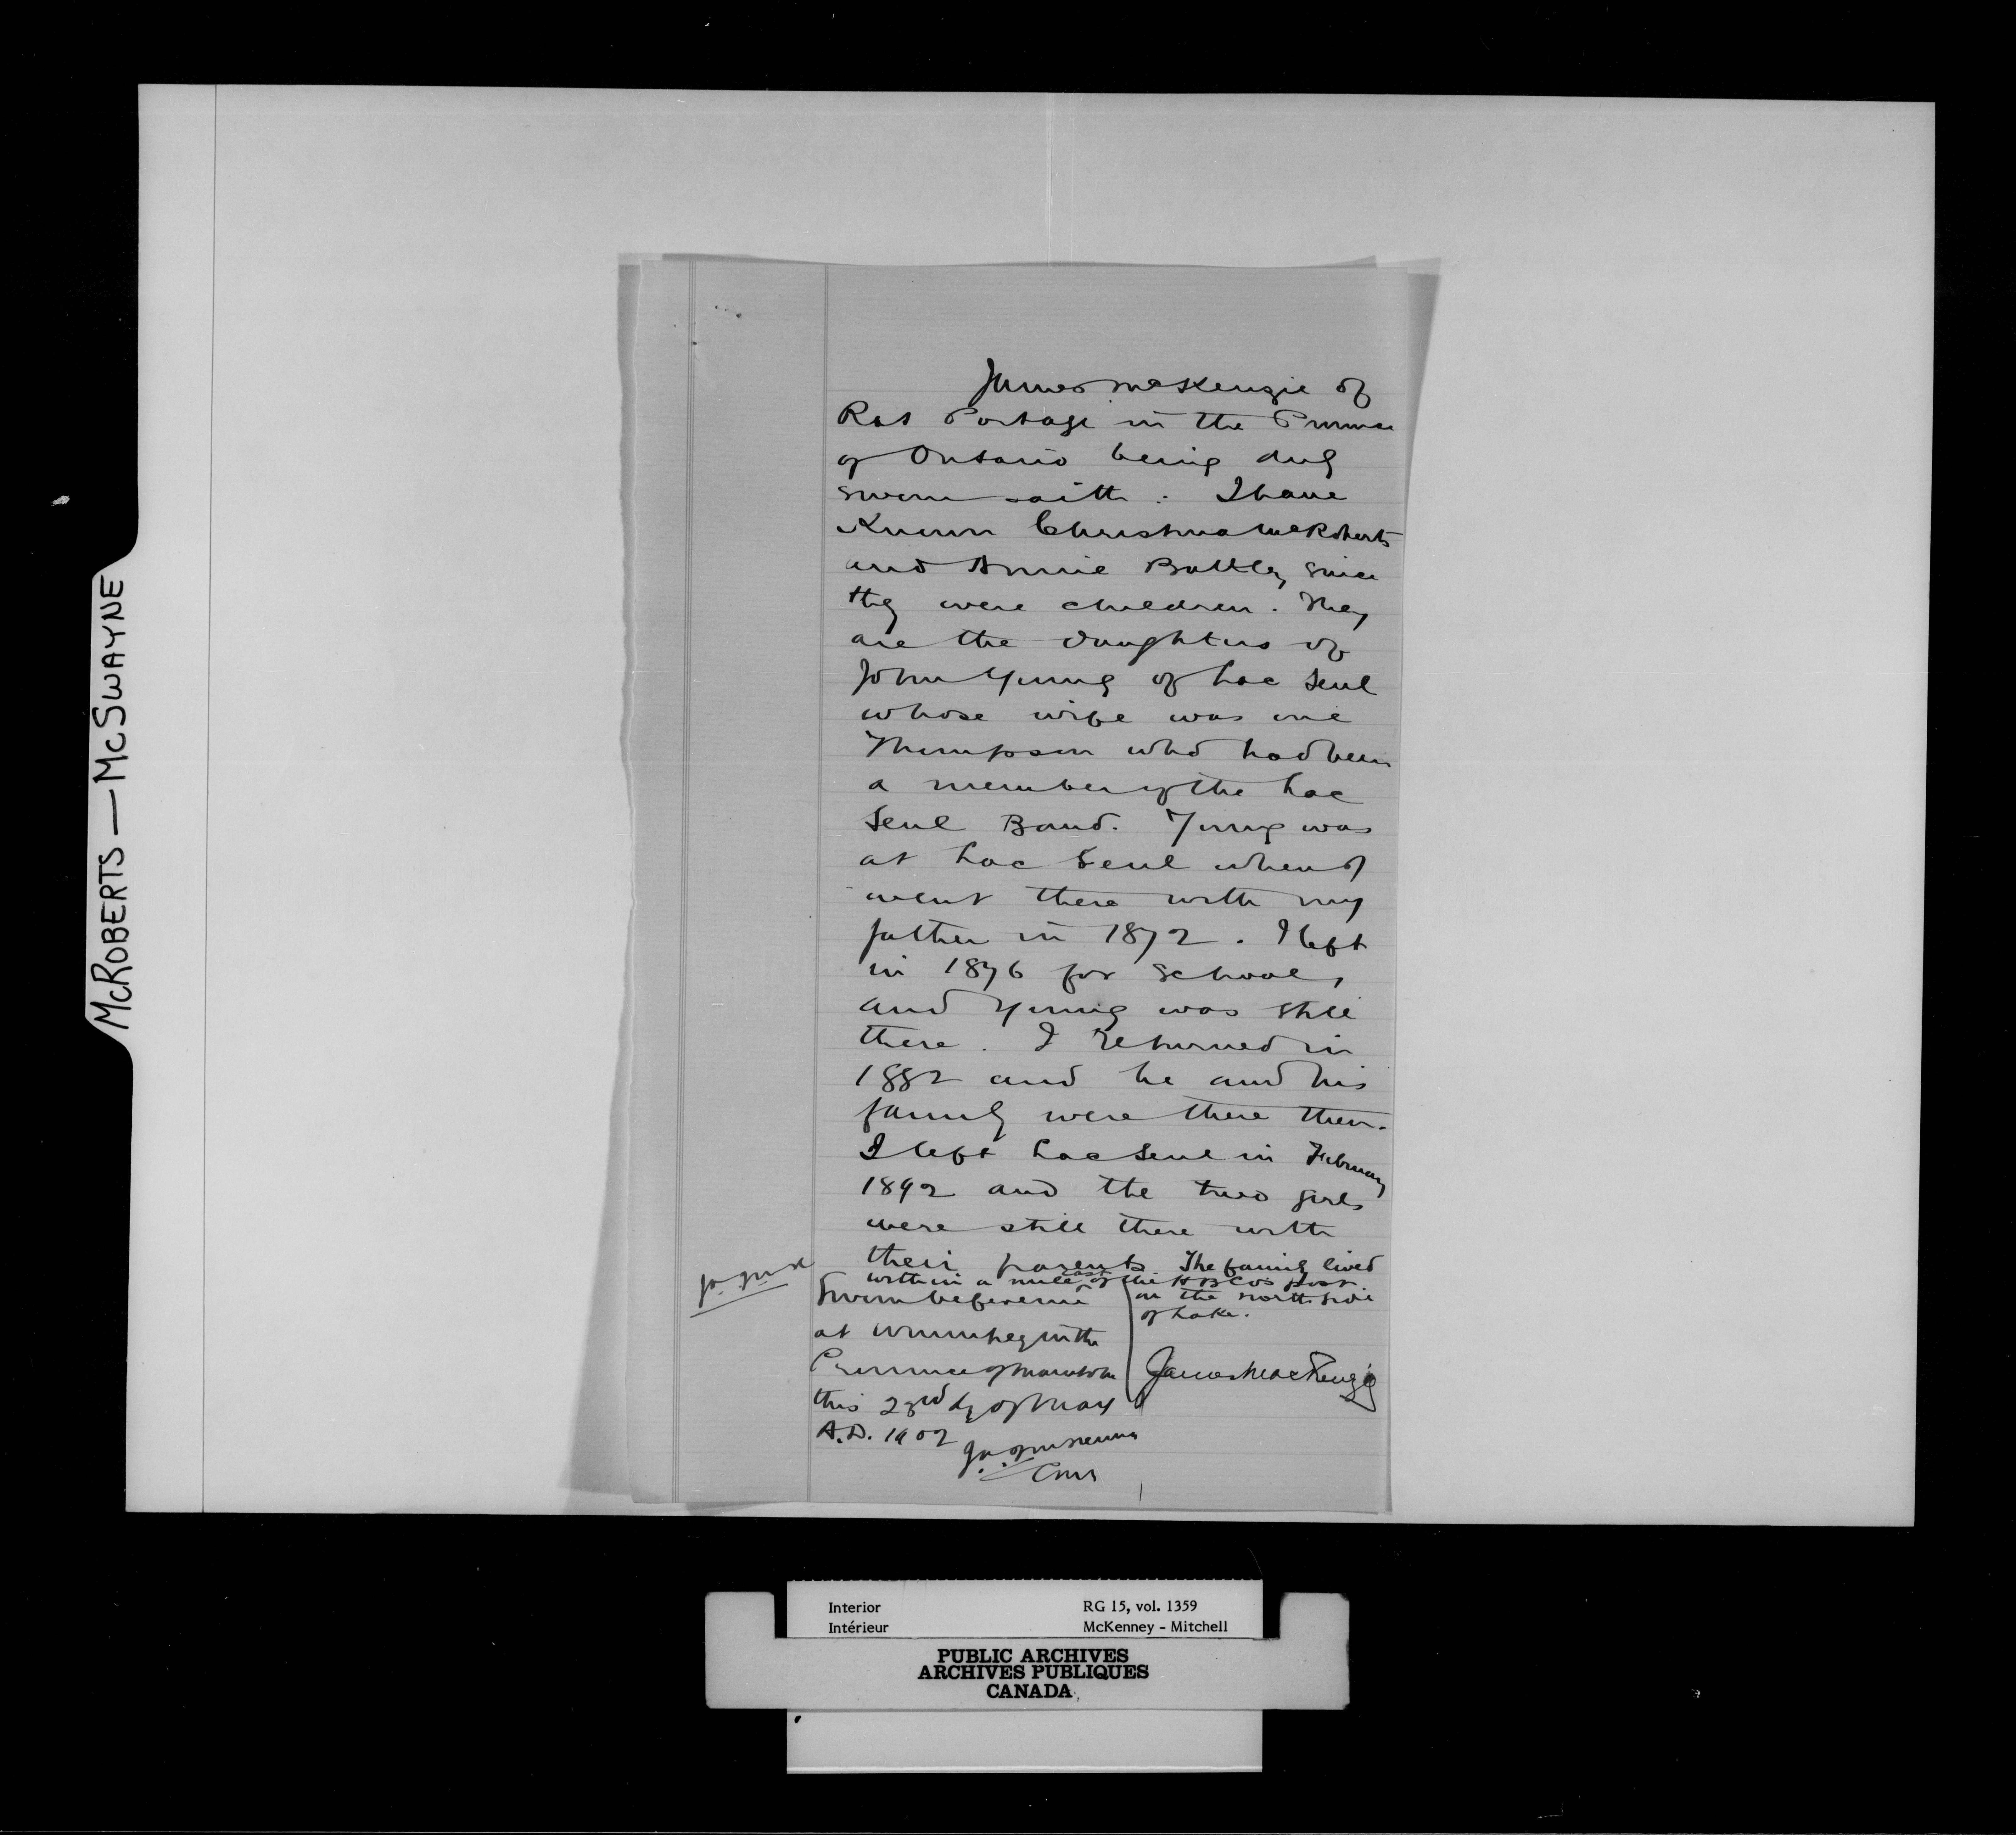 McROBERTS — McSWAYNE
James McKenzie of
Rat Portage in the Province
of Ontario being duly
sworn saith : I have
Known Christina McRoberts
and Annie Battley since
they were children. They
are the daughters of
John Young of Lac Seul
whose wife was one
Thompson who had been
a member of the Lac
Seul Band. Young was
at Lac Seul when I
went there with my
father in 1872. I left
in 1876 for school,
and Young was still
there. I returned in
1882 and he and his
family were there then.
I left Lac Seul in February
1892 and the two girls
were still there with
their parents. The family lived
within a mile east of the H B Co's post
on the north side
of Lake.
Sworn before me
at Winnipeg in the
Province of Manitoba
this 23rd dy of May
A.D. 1902
James MacKenzie
J.A.J. McKenna
Comr
Interior
Intérieur
RG 15, vol. 1359
McKenney - Mitchell
PUBLIC ARCHIVES
ARCHIVES PUBLIQUES
CANADA